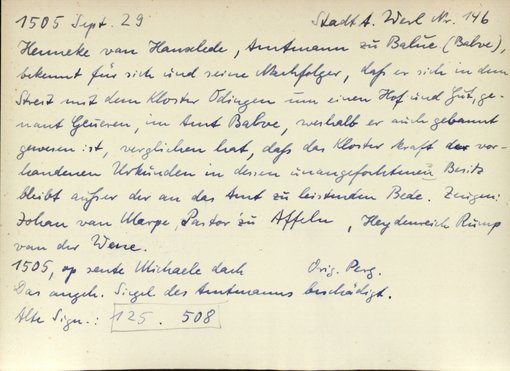 1505 Sept. 29 Stadt A. Werl Nr. 146
Henneke van Hanxlede, Amtmann zu Balue (Balve),
bekennt für sich und seine Nachfolger, daß er sich in dem
Streit mit dem Kloster Ödingen um einen Hof und Gut, ge-
nant Geueren, im Amt Balve, weshalb er auch gebannt
gewesen ist, verglichen hat, daß das Kloster kraft der vor-
handenen Urkunden in dessen unangefochtenen Besitz
bleibt außer der an das Amt zu leistenden Bede. Zeugen:
Johan van Marpe, Pastor zu Affeln, Heydenreich Rump
van der Wenne.
1505, op sente Michaele dach Orig. Perg.
Das angeh. Siegel des Amtmanns beschädigt.
Alte Sign.: 125. 508